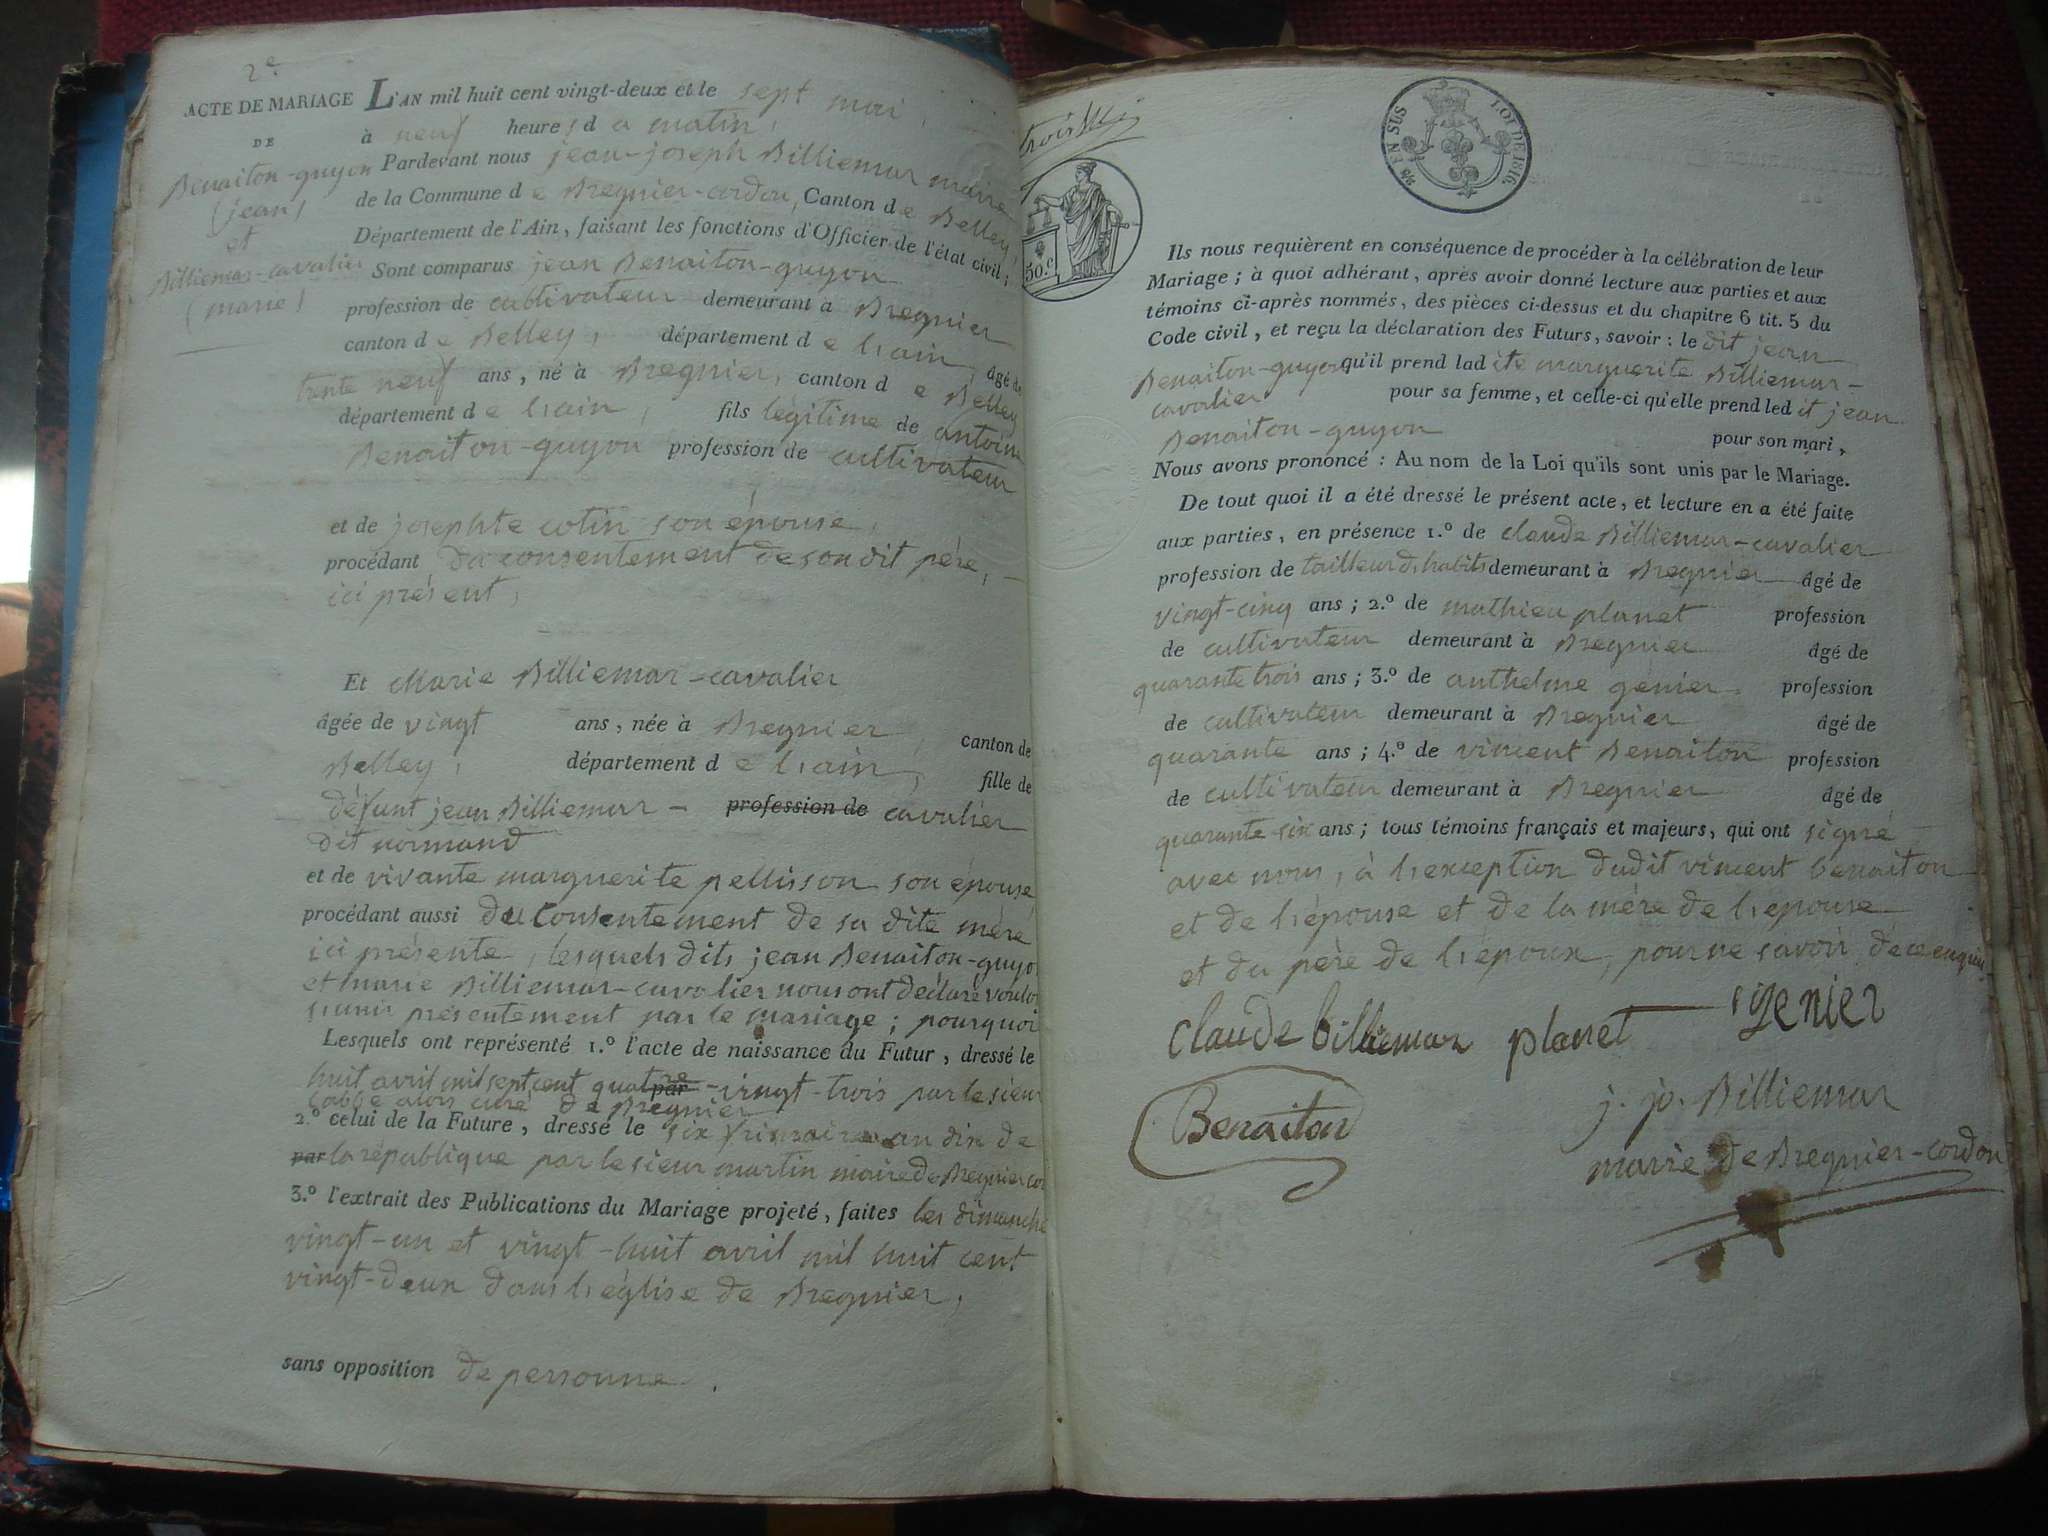 2e.
ACTE DE MARIAGE
DE
Benaiton-guyon
(jean)
et
Billiemas-cavalier
(marie)
L'AN mil huit cent vingt-deux et le sept mai,
à neuf heures du matin,
Pardevant nous jean-joseph Billiemas maire
de la Commune de Bregnier-cordon, Canton de Belley,
Département de l'Ain, faisant les fonctions d'Officier de l'état civil;
Sont comparus jean Benaiton-guyon
profession de cultivateur demeurant à Bregnier
canton de Belley, département de l'ain, âgé de
trente neuf ans, né à Bregnier, canton de Belley
département de l'ain, fils légitime de antoine
Benaiton-guyon profession de cultivateur
et de josephte cotin son épouse,
procédant du consentement de son dit père,
ici présent,
Et Marie Billiemas-cavalier
âgée de vingt ans, née à Bregnier canton de
Belley, département de l'ain, fille de
défunt jean Billiemas- profession de cavalier
dit normand
et de vivante marguerite pellisson son épouse
procédant aussi du consentement de sa dite mère
ici présente, lesquels dits jean Benaiton-guyo
et Marie Billiemas-cavalier nous ont déclaré voulo
s'unir présentement par le mariage; pourquoi
Lesquels ont représenté 1.º l'acte de naissance du Futur, dressé le
huit avril mil sept cent quatre par -vingt-trois par le sieur
labbe alors curé de Bregnier
2.º celui de la Future, dressé le six frimaire an dix de
par la république par le sieur martin maire de Bregnier cor
3.º l'extrait des Publications du Mariage projeté, faites les dimanche
vingt-un et vingt-huit avril mil huit cent
vingt-deux dans l'église de Bregnier,
sans opposition de personne.
50.c
EN SUS
LOI DE 1816.
Ils nous requièrent en conséquence de procéder à la célébration de leur
Mariage; à quoi adhérant, après avoir donné lecture aux parties et aux
témoins ci-après nommés, des pièces ci-dessus et du chapitre 6 tit. 5 du
Code civil, et reçu la déclaration des Futurs, savoir: le dit jean
Benaiton-guyon, qu'il prend ladite marguerite Billiemas-
cavalier pour sa femme, et celle-ci qu'elle prend ledit jean
Benaiton-guyon pour son mari,
Nous avons prononcé: Au nom de la Loi qu'ils sont unis par le Mariage.
De tout quoi il a été dressé le présent acte, et lecture en a été faite
aux parties, en présence 1.º de claude Billiemas-cavalier
profession de tailleur d'habits demeurant à Bregnier âgé de
vingt-cinq ans; 2.º de mathieu planet profession
de cultivateur demeurant à Bregnier âgé de
quarante trois ans; 3.º de anthelme genier profession
de cultivateur demeurant à Bregnier âgé de
quarante ans; 4.º de vincent Benaiton profession
de cultivateur demeurant à Bregnier âgé de
quarante six ans; tous témoins français et majeurs, qui ont signé
avec nous, à l'exception dudit vincent benaiton
et de l'épouse et de la mère de l'épouse
et du père de l'époux, pour ne savoir de ce enquis
claude billiemaz planet genier
Benaiton j. jo. Billiemas
maire de Bregnier-cordon